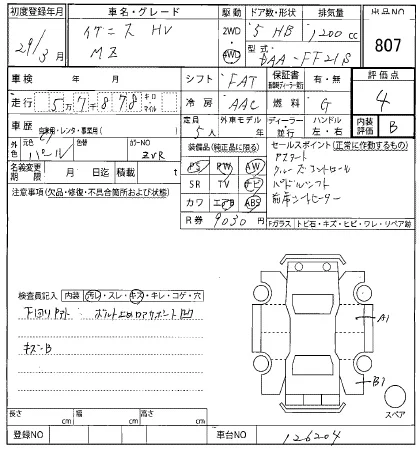 初度登録年月 車名・グレード 駆動 ドア数・形状 排気量 出品NO
29/3月 イグニス HV 2WD ・ 4WD 5 HB 1,200 cc 807
MZ 型式 DAA-FF21S
車検 年 月 シフト FAT 保証書 有・無 評価点
走行 5万7千878 キロ・マイル 冷房 AAC 燃料 G 4
車歴 自家用・レンタ・事業用( ) 定員 5人 外車モデル 年 ディーラー・並行 ハンドル 左・右 内装評価 B
外色 元色 パール 色替 カラーNO ZVR 装備品(純正品に限る) セールスポイント(正常に作動するもの)
名義変更期限 月 日迄 積載 t PS PW AW
SR TV ナビ クルーズコントロール
カワ エアB ABS パドルシフト
R券 9030 円 前席シートヒーター
注意事項(欠品・修復・不具合箇所および状態) Fガラス トビ石・キズ・ヒビ・ワレ・リペア跡
検査員記入 内装 汚れ・スレ・キズ・キレ・コゲ・穴
下回りサビ
キズ-B
A1
B1
スペア
長さ cm 幅 cm 高さ cm
登録NO 車台NO 126204